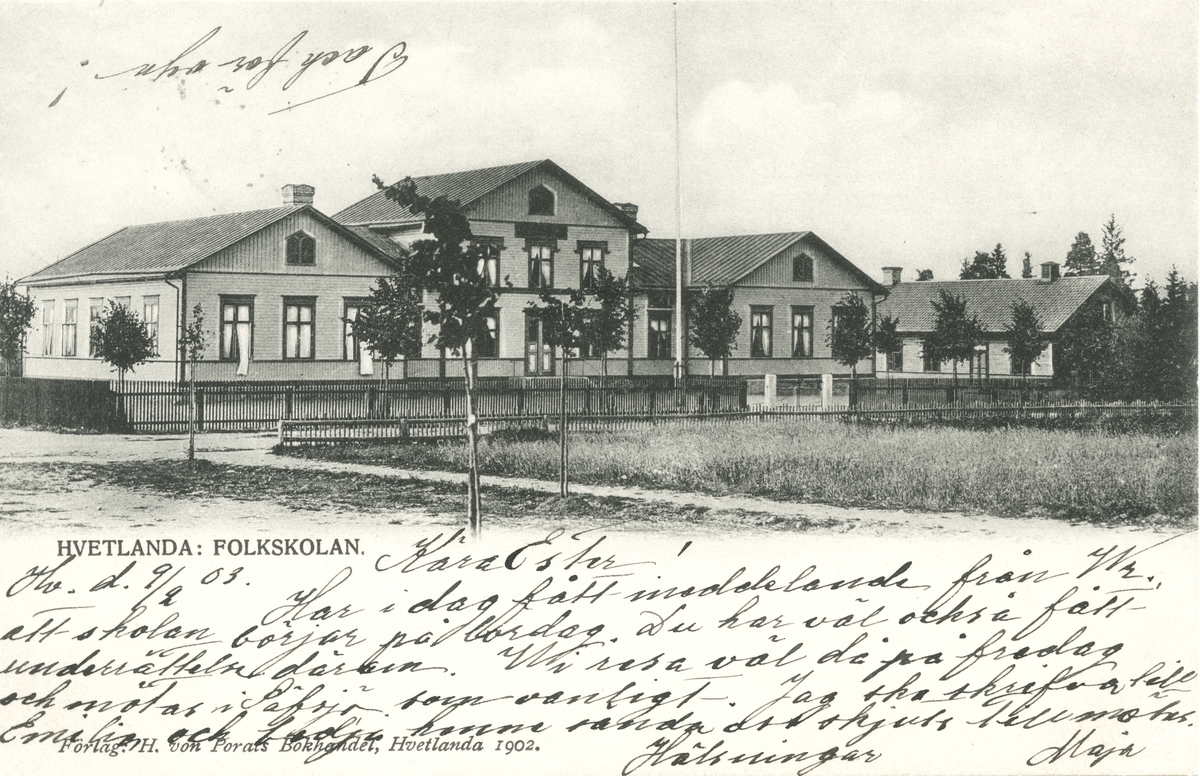 Tack för vyn!
HVETLANDA: FOLKSKOLAN.
Kära Ester!
Hv. d. 9/2 03.
Har i dag fått meddelande från Vr.,
att skolan börjar på lördag. Du har väl också fått
underrättelse därom. Vi resa väl då på fredag
och mötas i Säfsjö som vanligt. Jag ska skrifva till
Emilia och bedja henne sända oss skjuts till mötes.
Hälsningar Maja
Förlag: H. von Porats Bokhandel, Hvetlanda 1902.